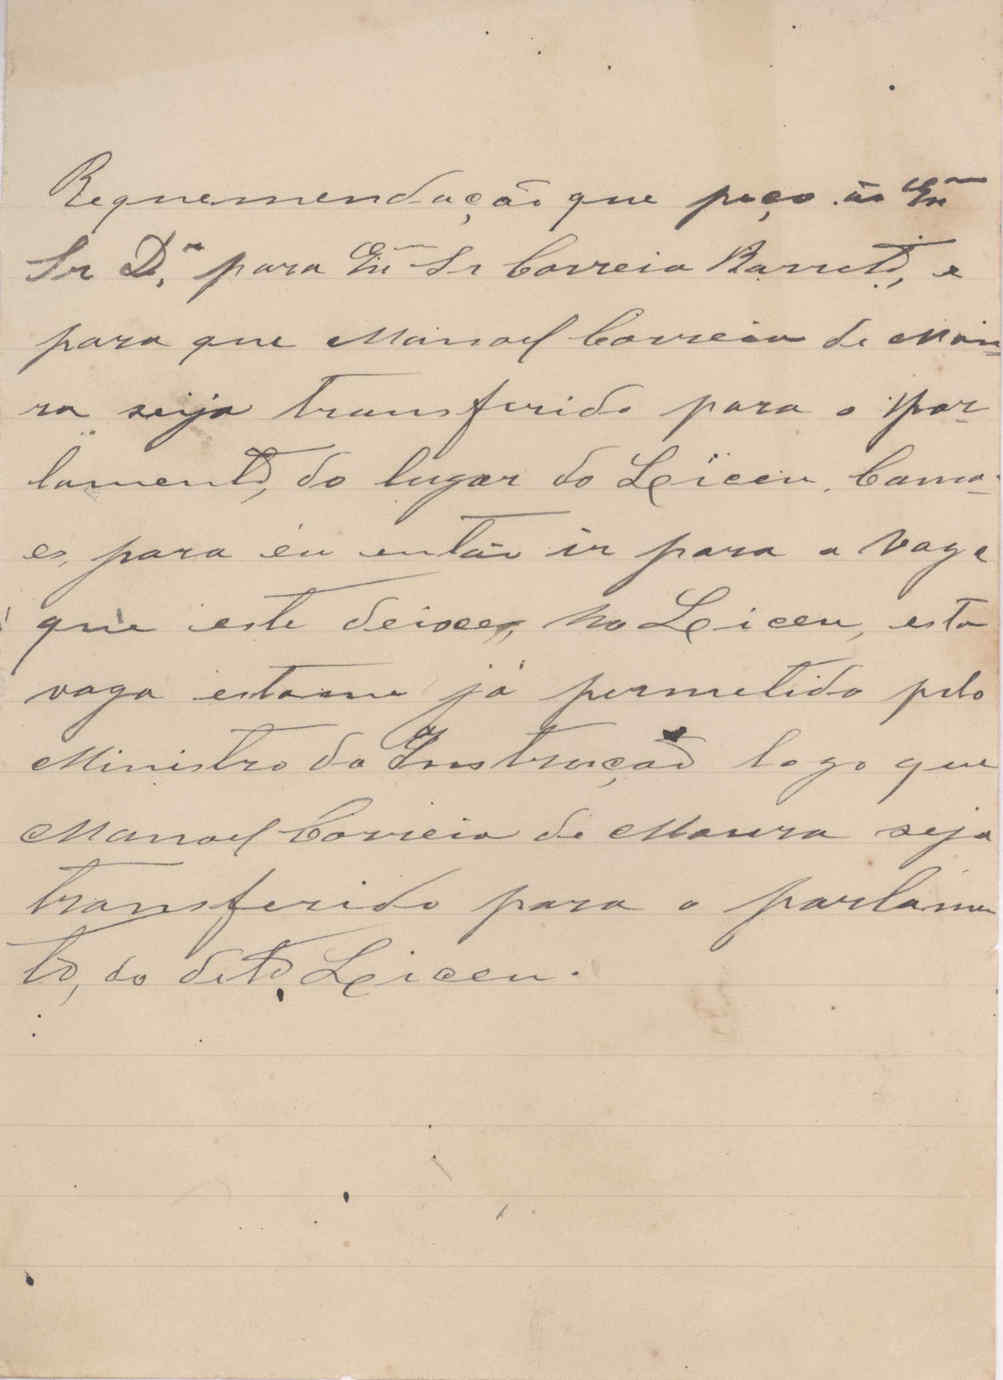 Requemendação que peço ao Exmo
Sr Dr. para Exmo Sr Correia Barreto, e
para que Manoel Correia de Mou-
ra seija transferido para o par-
lamento, do lugar do Leiceu, Camo-
es, para eu então ir para a vaga
que este deixer, no Leiceu, esta
vaga estame já permetido pelo
Ministro da Instrução logo que
Manoel Correia de Moura seja
transferido para o parlamen
to, do dito Leiceu.